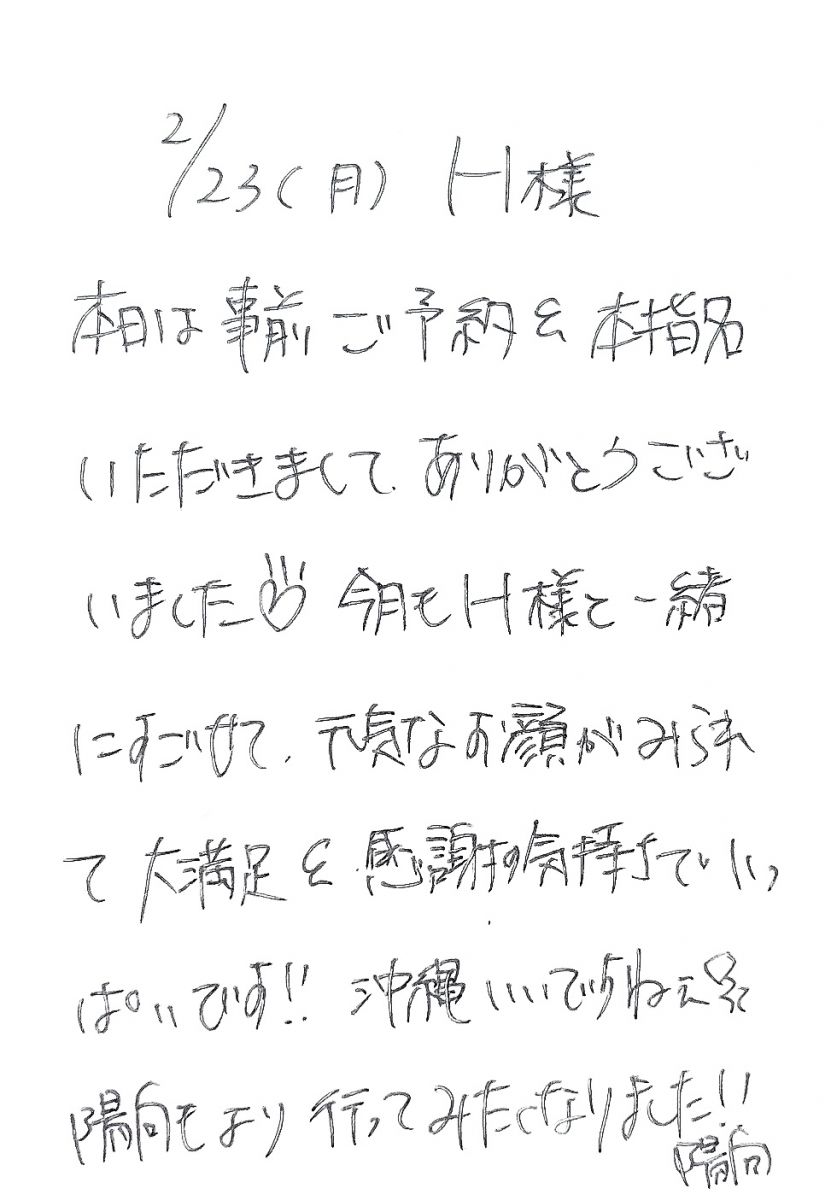 2/23(月) H様
本日は事前ご予約&本指名
いただきまして、ありがとうござ
いました♡ 今月もH様と一緒
にすごせて、元気なお顔がみられ
て大満足&感謝の気持ちでいっ
ぱいです!! 沖縄いいですねぇ
陽向もより行ってみたくなりました!!
陽向